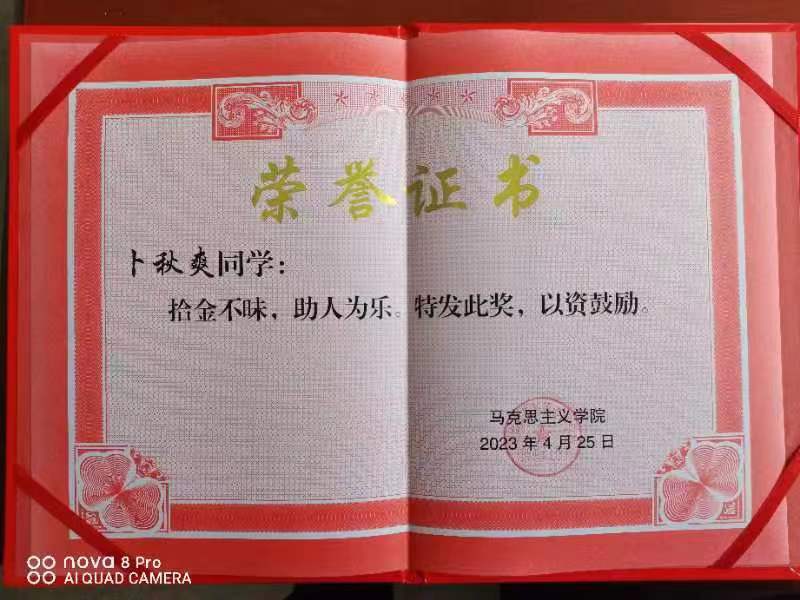 荣誉证书
卜秋爽同学：
拾金不昧，助人为乐。特发此奖，以资鼓励。
马克思主义学院
2023 年 4 月 25 日
nova 8 Pro
AI QUAD CAMERA